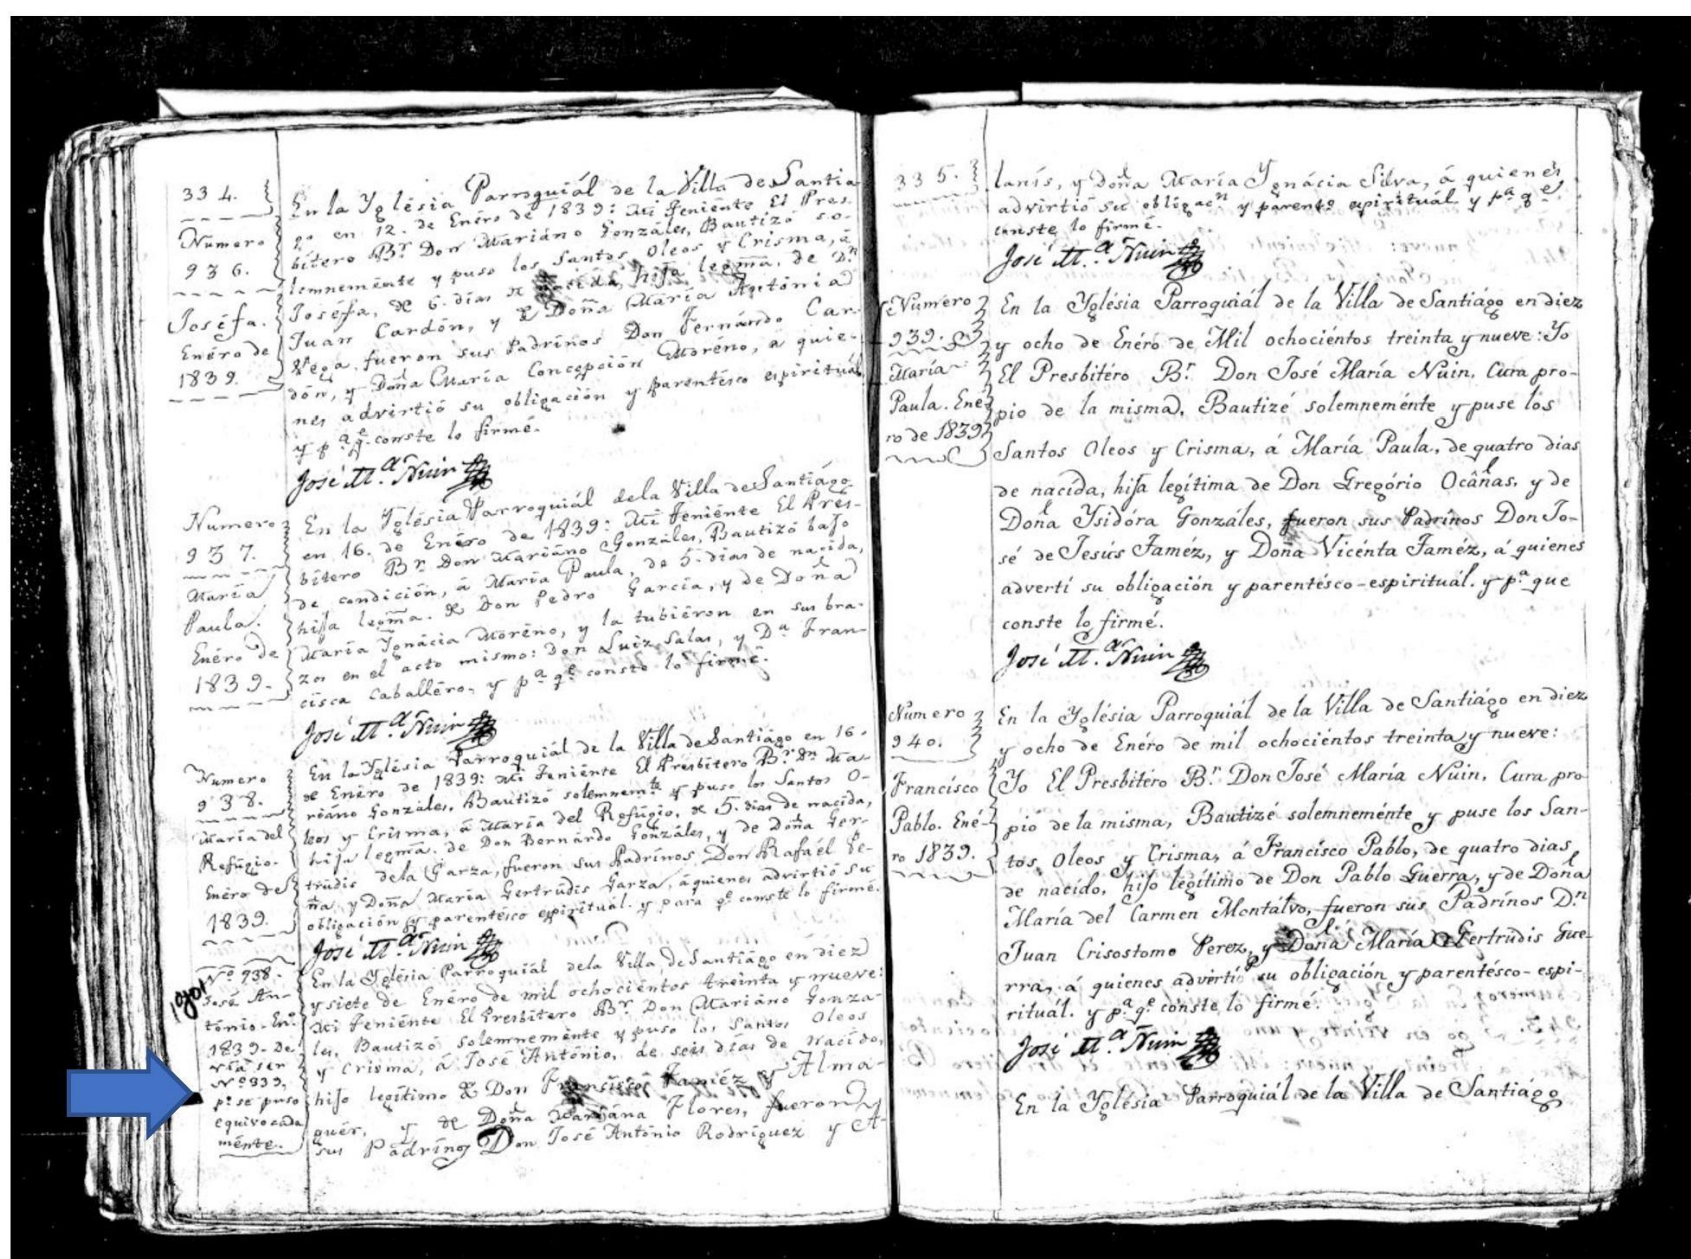 334.
Numero
936.
Joséfa.
Enéro de
1839.
En la Yglésia Parroquiál de la Villa de Santia
go en 12. de Enéro de 1839: Mi Teniénte El Pres
bítero Br. Don Mariáno Gonzáles, Bautizó so-
lemneménte y puso los Santos Oleos y Crisma, á
Joséfa, de 6. días de nacida, hija legma. de Dn
Juan Cardón, y de Doña María Antónia
Vega. fueron sus Padrínos Don Fernándo Car-
dón, y Doña María Concepción Moréno, á quie-
nes advirtió su obligación y parentésco espirituál
y pa. qe. conste lo firmé.
José Ma. Nuin
Numero
937.
María
Paula.
Enéro de
1839.
En la Yglésia Parroquiál dela Villa de Santiágo
en 16. de Enéro de 1839: Mi Teniénte El Pres-
bítero Br. Don Mariáno Gonzáles, Bautizó bajo
de condición, á María Paula, de 5. dias de nacida,
hija legma. de Don Pedro García, y de Doña
María Ygnácia Moréno, y la tubiéron en sus bra-
zos en el acto mismo: Don Luiz Salas, y Da. Fran-
cisca Caballéro, y pa. qe. conste lo firmé.
José Ma. Nuin
Numero
938.
María del
Refúgio.
Enéro de
1839.
En la Yglésia Parroquiál de la Villa de Santiágo en 16.
de Enéro de 1839: Mi Teniénte El Presbítero Br. Dn. Ma-
riáno Gonzáles, Bautizó solemnemte. y puso los Santos O-
leos y Crisma, á María del Refúgio, de 5. dias de nacida,
hija legma. de Don Bernárdo Gonzáles, y de Doña Ger-
trúdis dela Garza, fueron sus Padrínos, Don Rafaél Pe-
ña, y Doña María Gertrúdis Garza, á quienes advirtió su
obligación y parentésco espirituál. y para qe. conste lo firmé.
José Ma. Nuin
No. 938.
José An-
tónio. Eno.
1839. De
vía ser
No. 939,
p. se puso
equivocada
ménte.
En la Yglésia Parroquiál dela Villa de Santiágo en diez
y siete de Enéro de mil ochociéntos treinta y nueve:
Mi Teniénte El Presbítero Br. Don Mariáno Gonza-
les, Bautizó solemneménte y puso los Santos Oleos
y Crisma, á José António, de seis días de nacido,
hijo legítimo de Don Francisco Taméz y Alma-
guér, y de Doña Mariána Flores, fueron
sus Padrínos Don José António Rodríguez y A-
335.
lanís, y Doña María Ygnácia Silva, á quienes
advirtió su obligacn. y parento. espirituál y pa. qe.
conste lo firmé.
José Ma. Nuin
Numero
939.
María
Paula. Ené
ro de 1839.
En la Yglésia Parroquiál de la Villa de Santiágo en diez
y ocho de Enéro de Mil ochociéntos treinta y nueve: Yo
El Presbítero Br. Don José María Nuin, Cura pro-
pio de la misma, Bautizé solemneménte y puse los
Santos Oleos y Crisma, á María Paula, de quatro dias
de nacída, hija legítima de Don Gregório Ocañas, y de
Doña Ysidóra Gonzáles, fueron sus Padrínos Don Jo-
sé de Jesús Taméz, y Doña Vicénta Taméz, á quienes
advertí su obligación y parentésco-espirituál. y pa. que
conste lo firmé.
José Ma. Nuin
Numero
940.
Francísco
Pablo. Ené-
ro 1839.
En la Yglésia Parroquiál de la Villa de Santiágo en diez
y ocho de Enéro de mil ochociéntos treinta y nueve:
Yo El Presbítero Br. Don José María Nuin, Cura pro-
pio de la misma, Bautizé solemneménte y puse los San-
tos Oleos y Crisma, á Francísco Pablo, de quatro dias
de nacído, hijo legítimo de Don Pablo Guerra, y de Doña
María del Carmen Montálvo, fueron sus Padrínos Dn
Juan Crisostomo Perez, y Doña María Gertrúdis Gue-
rra, á quienes advertí su obligación y parentésco-espi-
rituál. y pa. qe. conste lo firmé.
José Ma. Nuin
En la Yglésia Parroquiál de la Villa de Santiágo